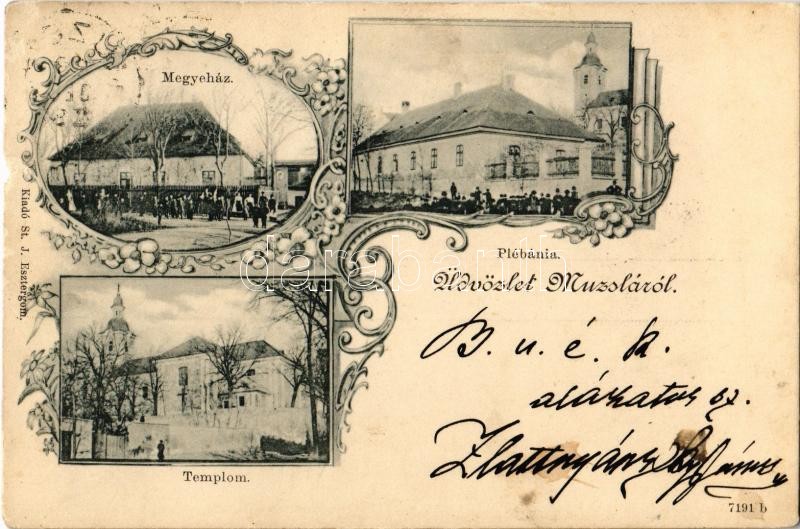 Megyeház.
Plébánia.
Üdvözlet Muzsláról.
B. u. é. k.
alázatos sz.
Templom.
Kiadó St. J. Esztergom.
7191 b
darabanth